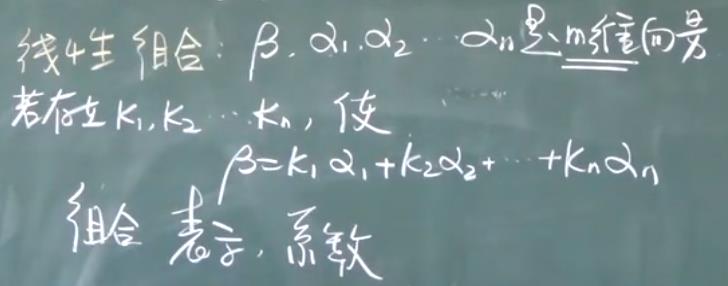 线性组合: β, α₁, α₂ ⋯ αₙ是m维向量
若存在 K₁, K₂ ⋯ Kₙ, 使
β=K₁α₁+K₂α₂+⋯+Kₙαₙ
组合 表示, 系数